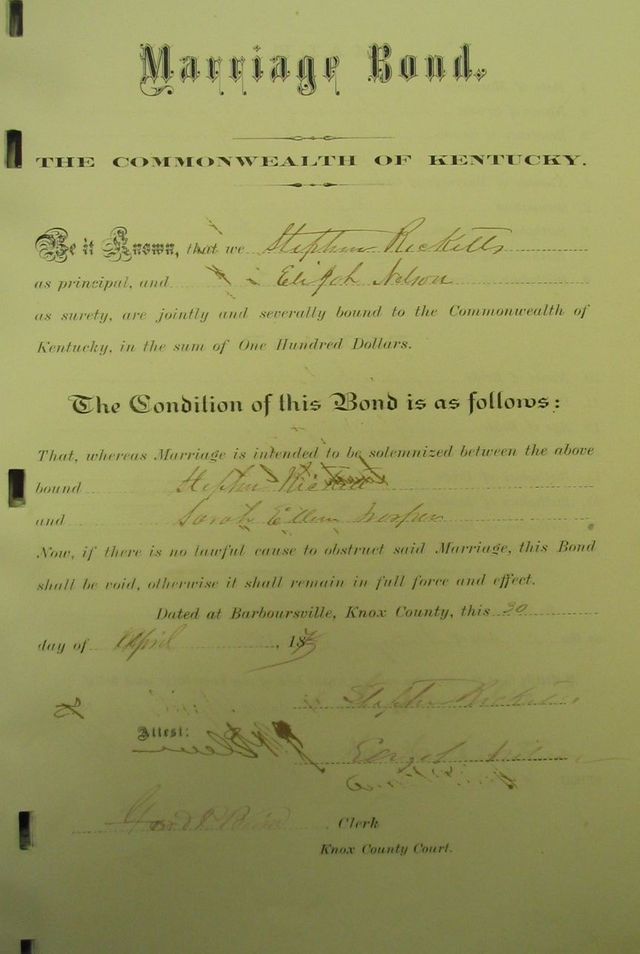 Marriage Bond.
THE COMMONWEALTH OF KENTUCKY.
Be it Known, that we Stephen Ricketts
as principal, and Elijah Nelson
as surety, are jointly and severally bound to the Commonwealth of
Kentucky, in the sum of One Hundred Dollars.
The Condition of this Bond is as follows:
That, whereas Marriage is intended to be solemnized between the above
bound Stephen
and Sarah Ellen
Now, if there is no lawful cause to obstruct said Marriage, this Bond
shall be void, otherwise it shall remain in full force and effect.
Dated at Barboursville, Knox County, this 30
day of April, 18
Stephen Ricketts
Attest:
Clerk
Knox County Court.